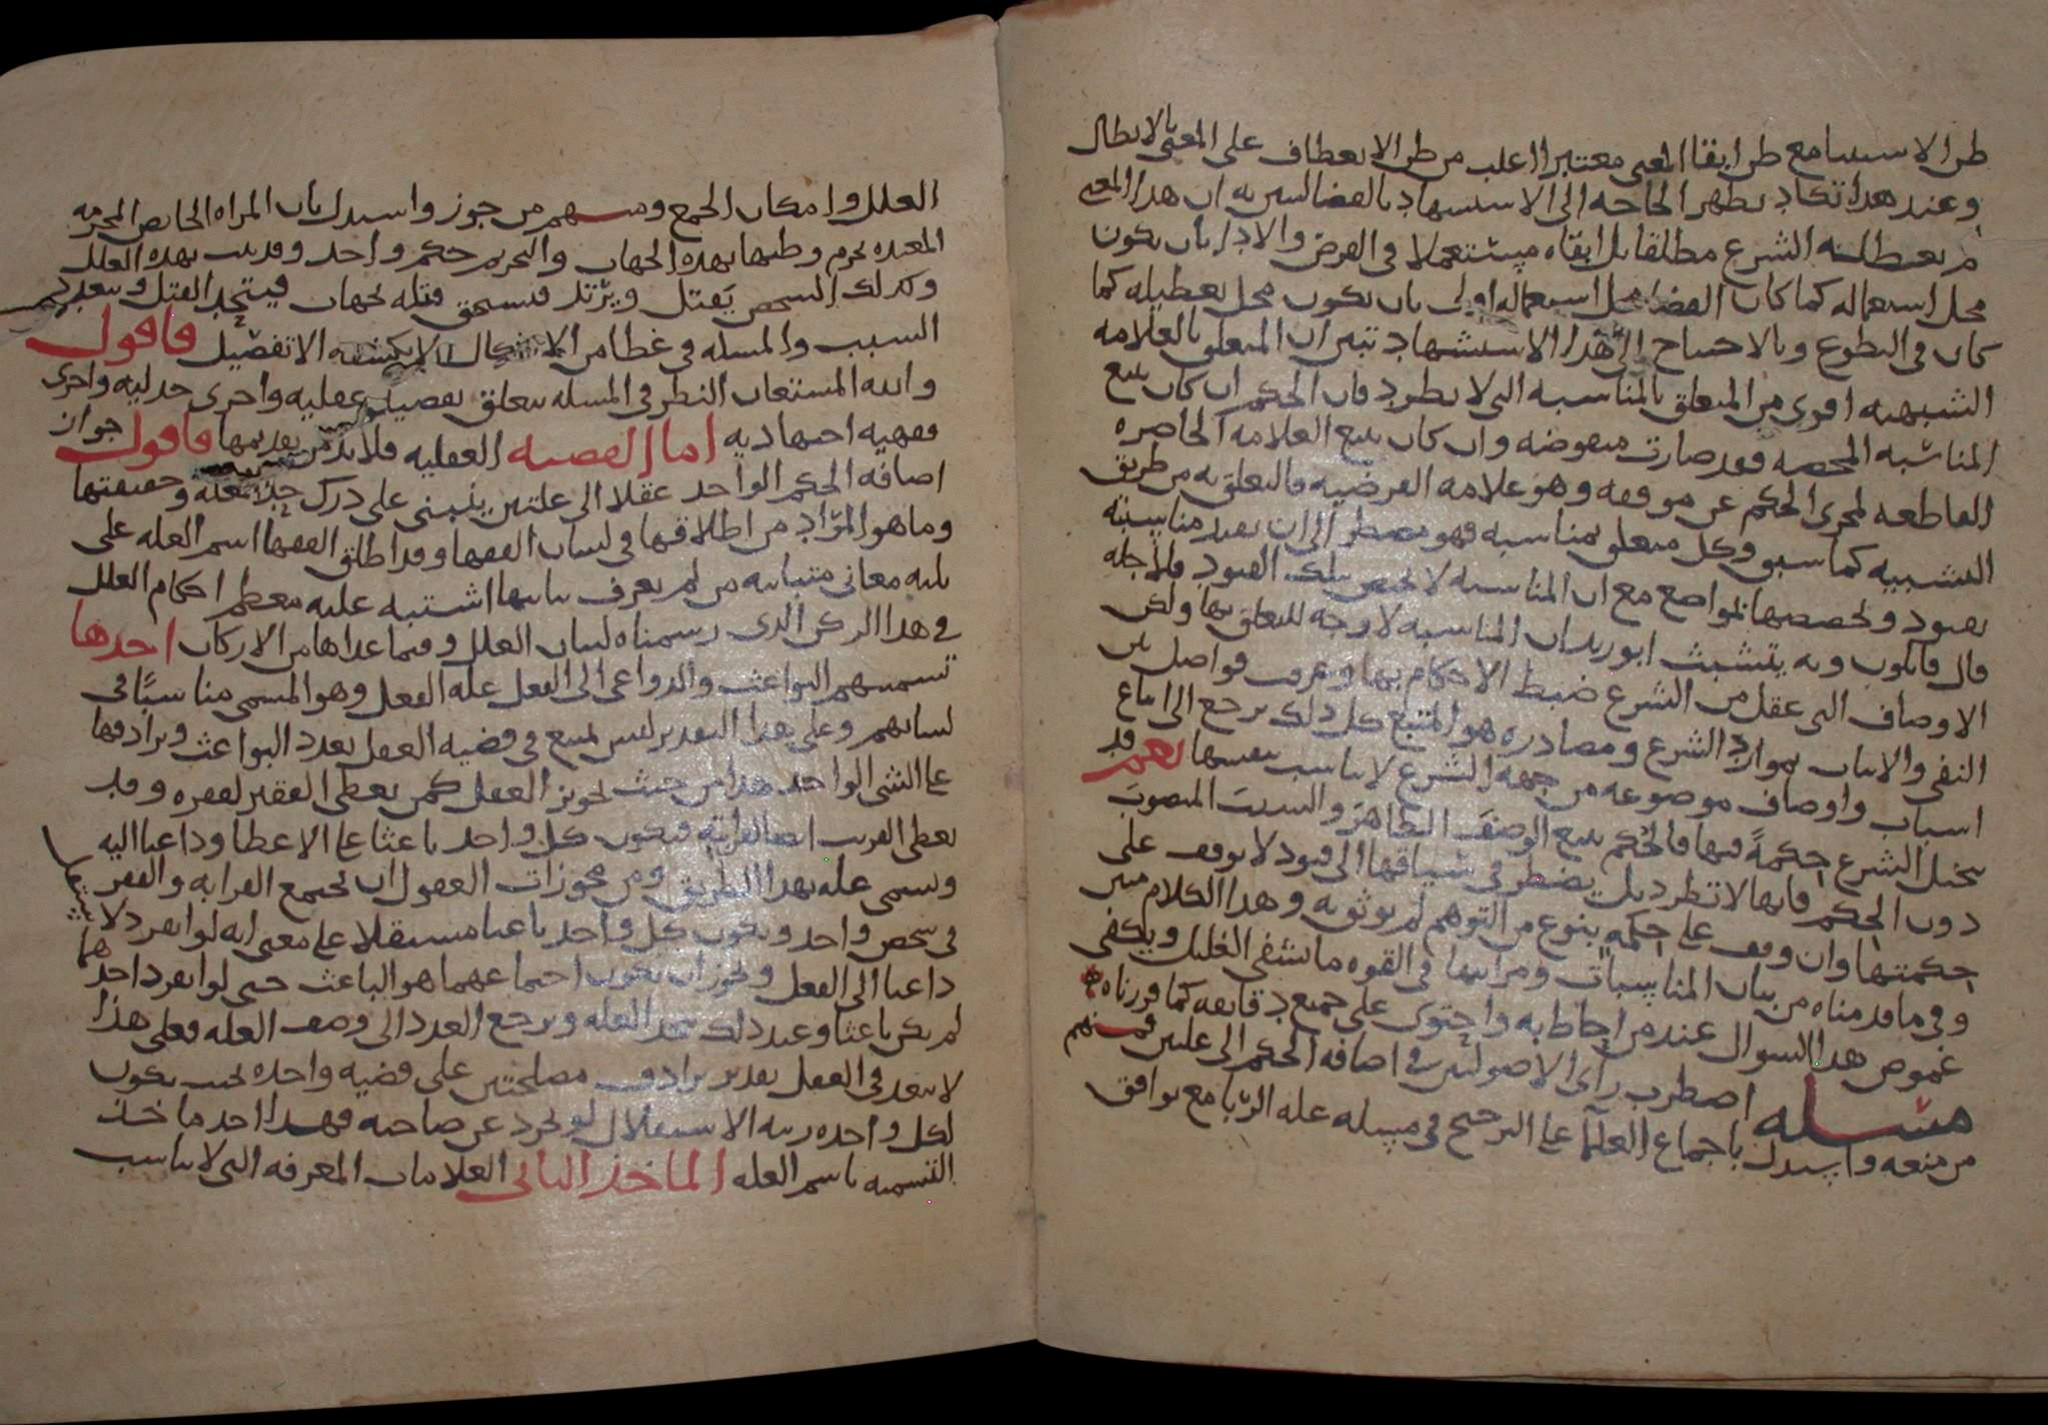 طرا الاستثنا مع طرا ابقا المعنى معتبرا اغلب من طرا الانعطاف على المعنى بالابطال
وعند هذا تكاد تظهر الحاجه الى الاستشهاد بالقضا السريه ان هذا المعنى
لم يعطله الشرع مطلقا بل ابقاه مستعملا في الفرض والادا بان يكون
محل استعماله كما كان القضا محل استعماله اولى بان يكون محل تعطيله كما
كان في التطوع وبالاحتياج الى هذا الاستشهاد تبين ان المتعلق بالعلامه
الشبهيه اقوى من المتعلق بالمناسبه التي لا تطرد فان الحكم ان كان يتبع
المناسبه المحصه فقد صارت منقوضه وان كان يتبع العلامه الحاصره
القاطعه لمجرى الحكم عن موقفه وهو علامه الفرضيه فالتعلق به من طريق
التشبيه كما سبق وكل متعلق بمناسبه فهو مضطر الى ان يقيد مناسبته
بقيود ويخصصها بمواضع مع ان المناسبه لا تختص بتلك القيود ولاجله
قال قايلون وبه يتشبث ابو زيد ان المناسبه لا وجه للتعلق بها ولكن
الاوصاف التي عقل من الشرع ضبط الاحكام بها وعرف فواصل بين
النفي والاثبات بموارد الشرع ومصادره هو المتبع كل ذلك يرجع الى اتباع
اسباب واوصاف موضوعه من جهه الشرع لا يناسب بنفسها نعم قد
يتخيل الشرع حكمةً فيها فالحكم يتبع الوصفَ الظاهرَ والسببَ المنصوبَ
دون الحكم فانها لا تطرد بل يضطر في سياقها الى قيود لا يوقف على
حكمتها وان وقف على حكمةٍ بنوع من التوهم لم يوثق به وهذا الكلام متين
وفي ما قدمناه من بيان المناسبات ومراتبها في القوه ما يشفي الغليل ويكفي
غموض هذا السوال عند من احاط به واحتوى على جميع دقايقه كما قررناه
مسله اضطرب راى الاصوليين في اضافه الحكم الى علتين فمنهم
من منعه واستدل باجماع العلما على الترجيح في مسله عله الربا مع توافق
العلل وامكان الجمع ومنهم من جوز واستدل بان المراه الحايض المحرمه
المعتده يحرم وطيها بهذه الجهات والتحريم حكم واحد وقد ثبت بهذه العلل
وكذلك الشخص يَقتل ويرتد فيستحق قتله بجهات فيتحد القتل ويتعدد
السبب والمسله في غطا من الاشكال لا يكشفه الا تفصيل فاقول
والله المستعان النظر في المسله يتعلق بقضيه عقليه واخرى جدليه واخرى
فقهيه اجتهاديه اما القضيه العقليه فلا بد من تقديمها فاقول جواز
اضافه الحكم الواحد عقلا الى علتين ينبني على درك حد العله وحقيقتها
وما هو المراد من اطلاقها في لسان الفقها وقد اطلق الفقها اسم العله على
ثلثه معاني متباينه من لم يعرف تباينها اشتبه عليه معظم احكام العلل
في هذا الركن الذي رسمناه لبيان العلل وفيما عداها من الاركان احدها
تسميتهم البواعث والدواعي الى الفعل عله الفعل وهو المسمى مناسبًا في
لسانهم وعلى هذا التقدير ليس يمتنع في قضيه العقل تعدد البواعث وترادفها
على الشي الواحد هذا من حيث تجويز العقل كمن يعطى الفقير لفقره وقد
يعطى القريب ايضا لقرابته فيكون كل واحد باعثا على الاعطا وداعيا اليه
وسمى عله بهذا الطريق ومن مجوزات العقول ان تجتمع القرابه والفقر
في شخص واحد ويكون كل واحد باعثا مستقلا على معنى انه لو انفرد لاستقل
داعيا الى الفعل ويجوز ان يكون اجتماعهما هو الباعث حتى لو انفرد احدهما
لم يكن باعثا وعند ذلك تتحد العله ويرجع العدد الى وصف العله فعلى هذا
لا يبعد في العقل تقدير ترادف مصلحتين على قضيه واحده بحيث يكون
لكل واحده رتبه الاستقلال لو تجرد عن صاحبه فهذا احد ماخذ
التسميه باسم العله الماخذ الثاني العلامات المعرفه التي لا يناسب